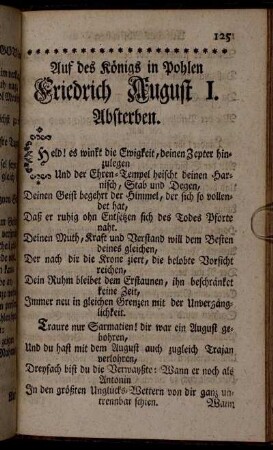 125
Auf des Königs in Pohlen
Friedrich August I.
Absterben.
Held! es winkt die Ewigkeit, deinen Zepter hin-
zulegen
Und der Ehren-Tempel heischt deinen Har-
nisch, Stab und Degen,
Deinen Geist begehrt der Himmel, der sich so vollen-
det hat,
Daß er ruhig ohn Entsetzen sich des Todes Pforte
naht.
Deinen Muth, Kraft und Verstand will dem Besten
deines gleichen,
Der nach dir die Krone ziert, die belobte Vorsicht
reichen,
Dein Ruhm bleibet dem Erstaunen, ihn beschränket
keine Zeit,
Immer neu in gleichen Grenzen mit der Unvergäng-
lichkeit.
Traure nur Sarmatien! dir war ein August ge-
bohren,
Und du hast mit dem August auch zugleich Trajan
verlohren,
Dreyfach bist du die Verwayßte: Wann er noch als
Antonin
In den größten Unglücks-Wettern von dir ganz un-
trennbar schien.
Wann